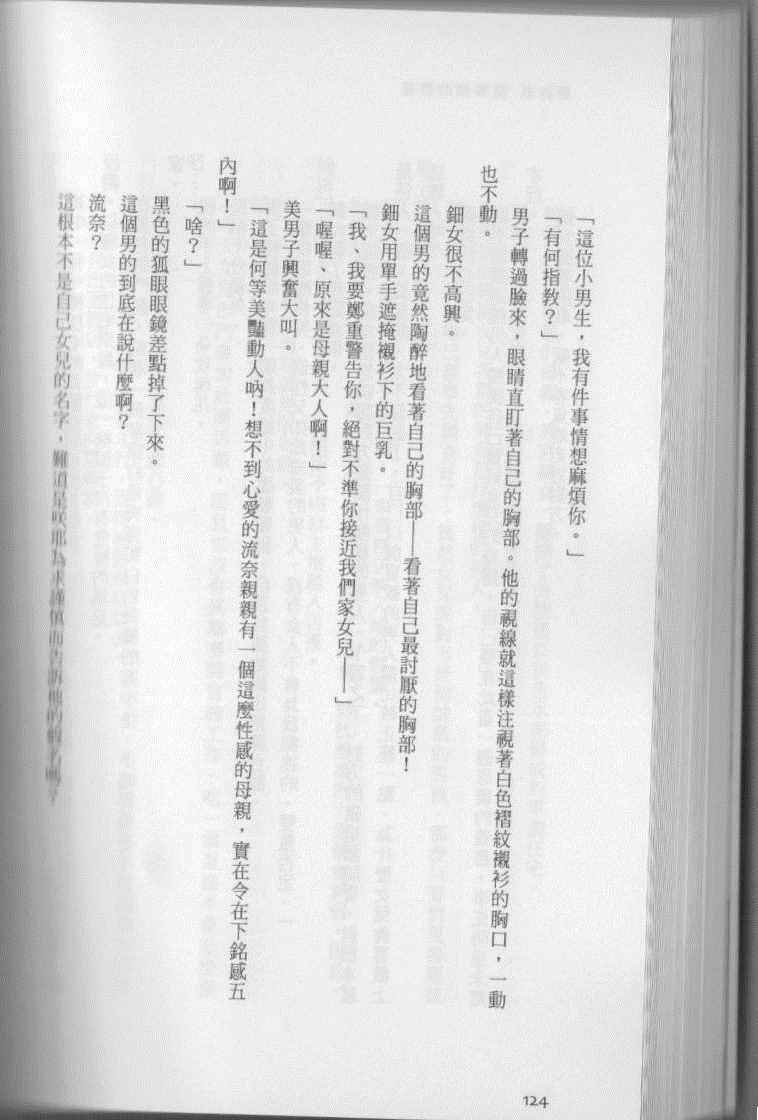 「這位小男生，我有件事情想麻煩你。」
「有何指教？」
男子轉過臉來，眼睛直盯著自己的胸部。他的視線就這樣注視著白色褶紋襯衫的胸口，一動
也不動。
鈿女很不高興。
這個男的竟然陶醉地看著自己的胸部——看著自己最討厭的胸部！
鈿女用單手遮掩襯衫下的巨乳。
「我、我要鄭重警告你，絕對不準你接近我們家女兒——」
「喔喔、原來是母親大人啊！」
美男子興奮大叫。
「這是何等美豔動人吶！想不到心愛的流奈親親有一個這麼性感的母親，實在令在下銘感五
內啊！」
「啥？」
黑色的狐眼眼鏡差點掉了下來。
這個男的到底在說什麼啊？
流奈？
這根本不是自己女兒的名字，難道是咲耶為求謹慎而告訴他的假名嗎？
124